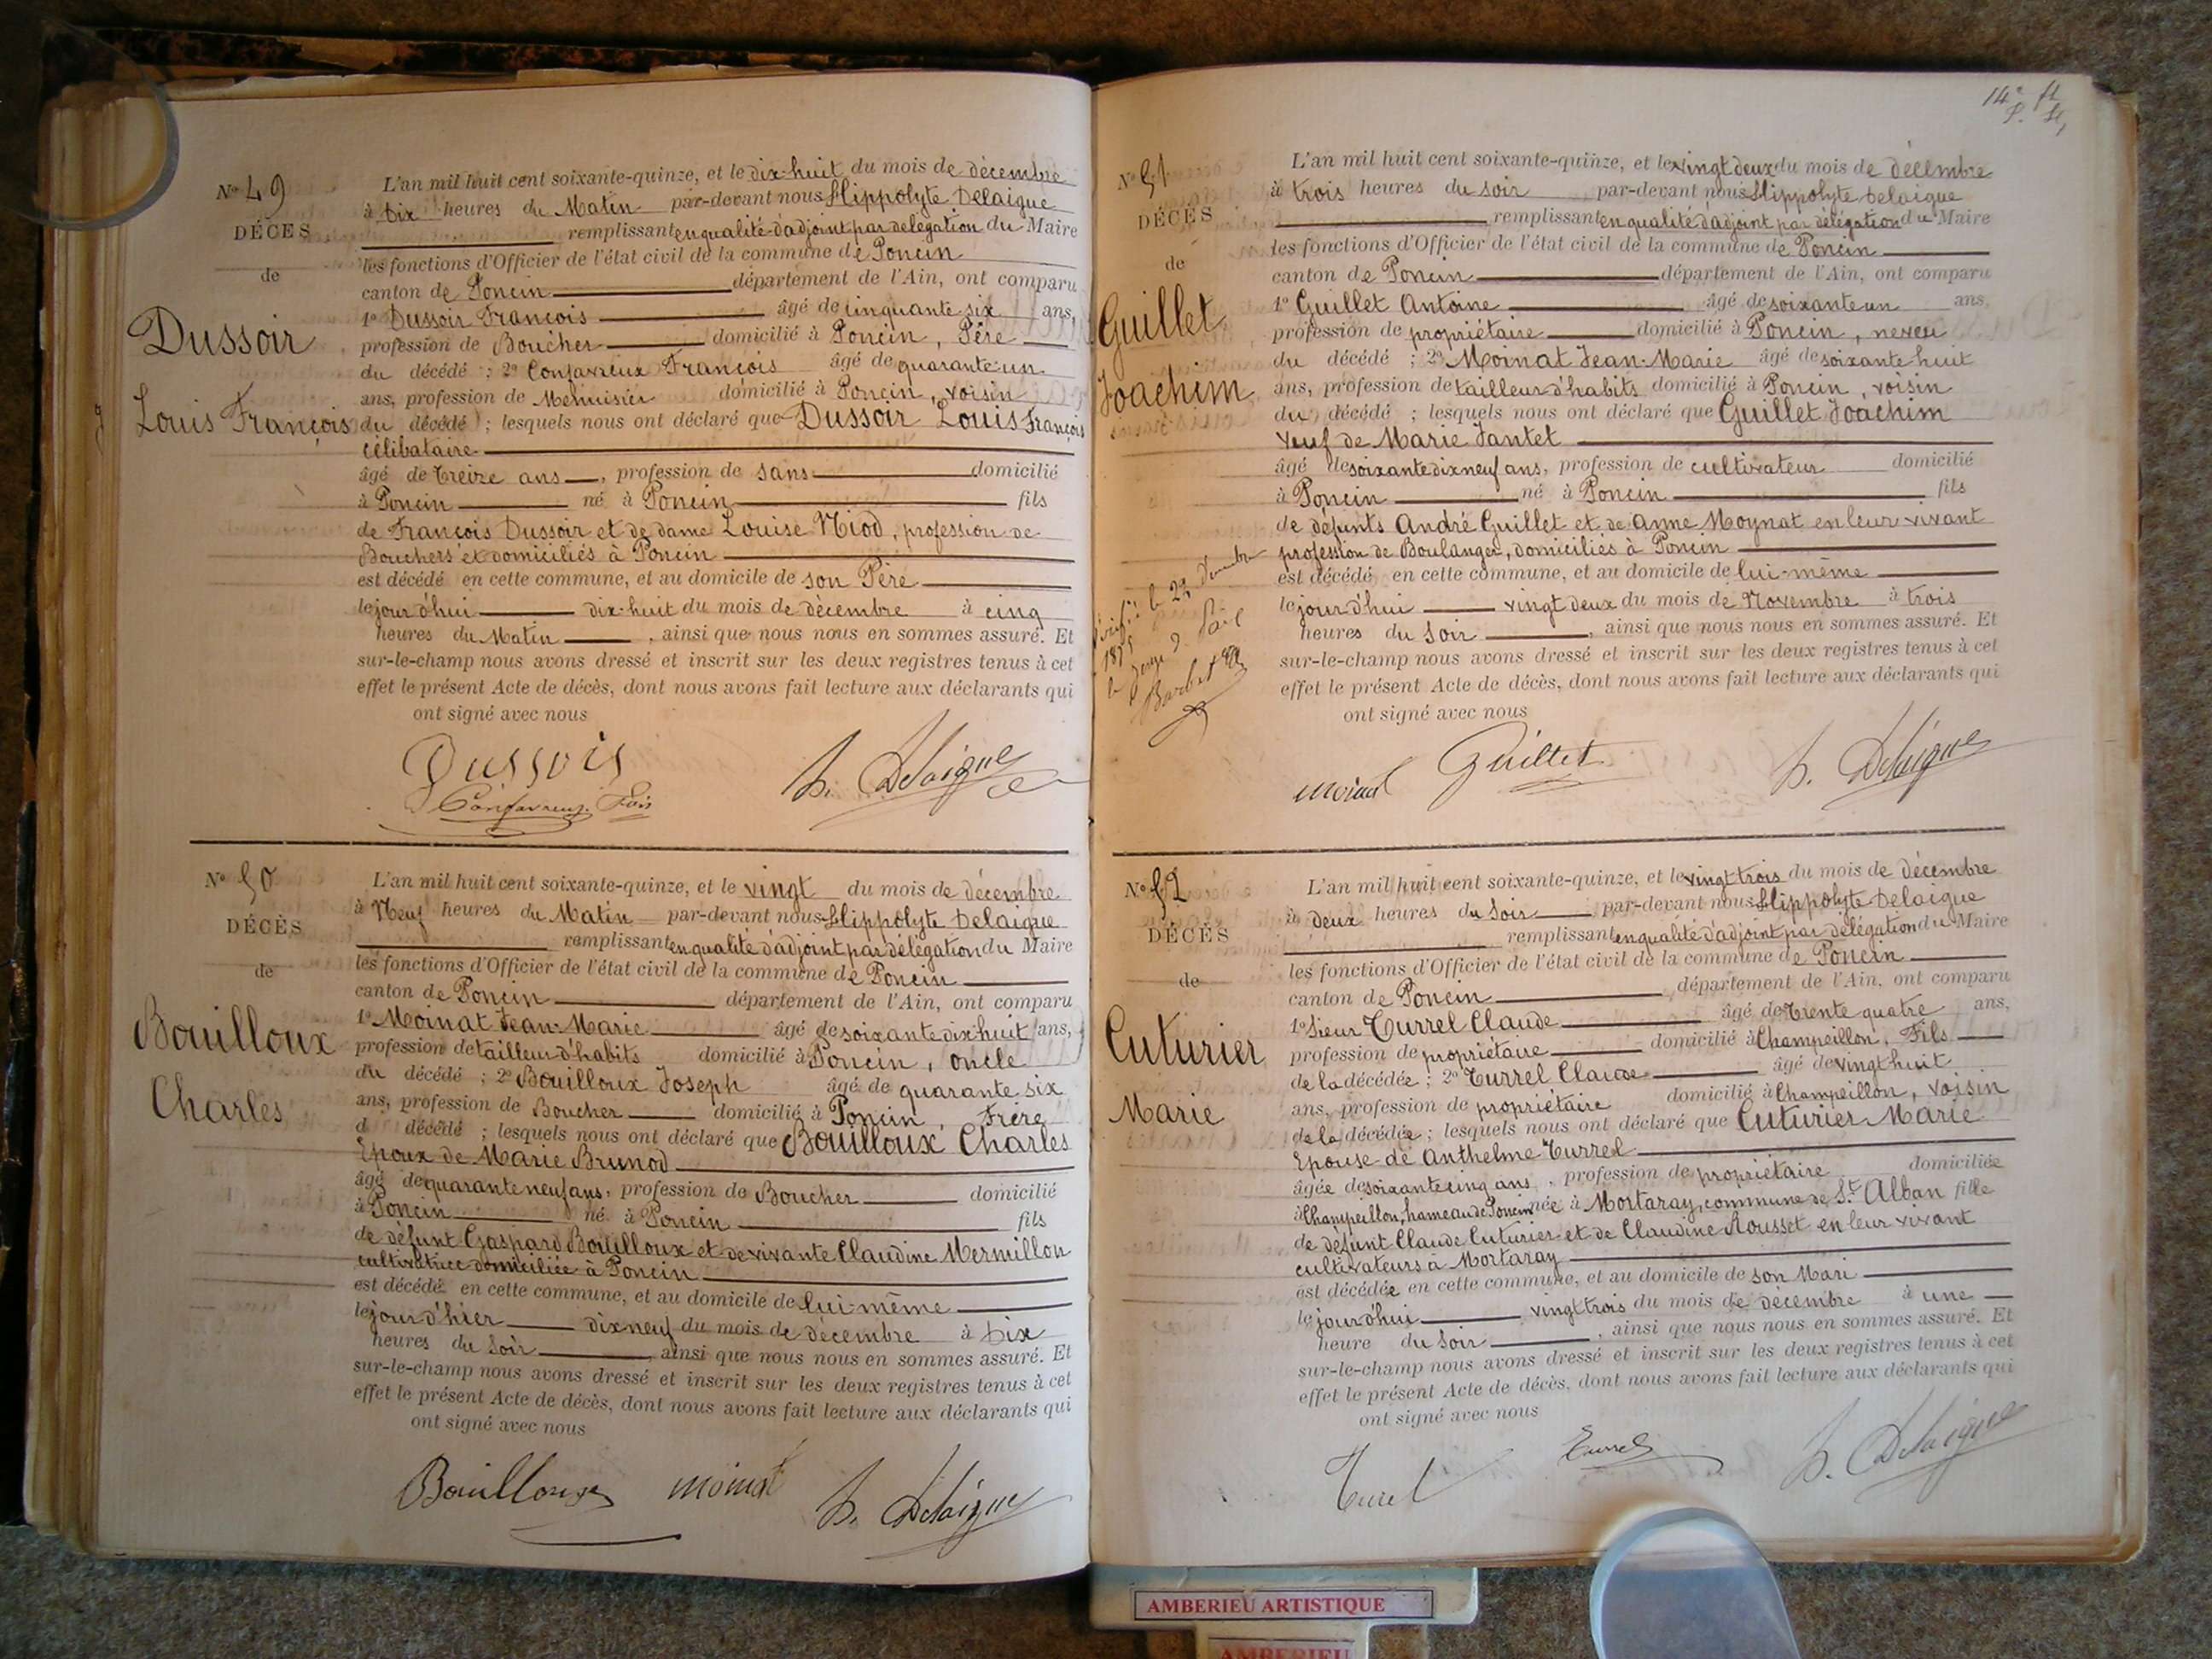 N° 49
DÉCÈS
de
Dussoir
Louis François
L'an mil huit cent soixante-quinze, et le dix-huit du mois de décembre
à Dix heures du Matin par-devant nous Hippolyte Delaigue
remplissant en qualité d'adjoint par délégation du Maire
les fonctions d'Officier de l'état civil de la commune de Poncin
canton de Poncin département de l'Ain, ont comparu
1° Dussoir François âgé de cinquante six ans,
profession de Boucher domicilié à Poncin, Père
du décédé ; 2° Confavreux François âgé de quarante un
ans, profession de Menuisier domicilié à Poncin, voisin
du décédé ; lesquels nous ont déclaré que Dussoir Louis François
célibataire
âgé de treize ans, profession de sans domicilié
à Poncin né à Poncin fils
de François Dussoir et de dame Louise Niod, profession de
Bouchers et domiciliés à Poncin
est décédé en cette commune, et au domicile de son Père
le jour d'hui dix-huit du mois de décembre à cinq
heures du Matin, ainsi que nous nous en sommes assuré. Et
sur-le-champ nous avons dressé et inscrit sur les deux registres tenus à cet
effet le présent Acte de décès, dont nous avons fait lecture aux déclarants qui
ont signé avec nous
Dussoir
Confavreux Fois
h. Delaigue
N° 50
DÉCÈS
de
Bouilloux
Charles
L'an mil huit cent soixante-quinze, et le vingt du mois de décembre
à Neuf heures du Matin par-devant nous Hippolyte Delaigue
remplissant en qualité d'adjoint par délégation du Maire
les fonctions d'Officier de l'état civil de la commune de Poncin
canton de Poncin département de l'Ain, ont comparu
1° Moinat Jean-Marie âgé de soixante dix huit ans,
profession de tailleur d'habits domicilié à Poncin, oncle
du décédé ; 2° Bouilloux Joseph âgé de quarante six
ans, profession de Boucher domicilié à Poncin, Frère
d décédé ; lesquels nous ont déclaré que Bouilloux Charles
Epoux de Marie Brunod
âgé de quarante neuf ans, profession de Boucher domicilié
à Poncin né à Poncin fils
de défunt Gaspard Bouilloux et de vivante Claudine Mermillon
cultivatrice domiciliée à Poncin
est décédé en cette commune, et au domicile de lui-même
le jour d'hier dix neuf du mois de décembre à Dix
heures du Soir, ainsi que nous nous en sommes assuré. Et
sur-le-champ nous avons dressé et inscrit sur les deux registres tenus à cet
effet le présent Acte de décès, dont nous avons fait lecture aux déclarants qui
ont signé avec nous
Bouilloux moinat h. Delaigue
14e
N° 51
DÉCÈS
de
Guillet
Joachim
L'an mil huit cent soixante-quinze, et le vingt deux du mois de décembre
à trois heures du soir par-devant nous Hippolyte Delaigue
remplissant en qualité d'adjoint par délégation du Maire
les fonctions d'Officier de l'état civil de la commune de Poncin
canton de Poncin département de l'Ain, ont comparu
1° Guillet Antoine âgé de soixante un ans,
profession de propriétaire domicilié à Poncin, neveu
du décédé ; 2° Moinat Jean-Marie âgé de soixante huit
ans, profession de tailleur d'habits domicilié à Poncin, voisin
du décédé ; lesquels nous ont déclaré que Guillet Joachim
veuf de Marie Jantet
âgé de soixante dix neuf ans, profession de cultivateur domicilié
à Poncin né à Poncin fils
de défunts André Guillet et de Anne Moynat en leur vivant
profession de Boulanger, domiciliés à Poncin
est décédé en cette commune, et au domicile de lui-même
le jour d'hui vingt deux du mois de Novembre à trois
heures du Soir, ainsi que nous nous en sommes assuré. Et
sur-le-champ nous avons dressé et inscrit sur les deux registres tenus à cet
effet le présent Acte de décès, dont nous avons fait lecture aux déclarants qui
ont signé avec nous
moinat Guillet h. Delaigue
Vérifié le 29 décembre
1875
le Juge de Paix
N° 52
DÉCÈS
de
Cuturier
Marie
L'an mil huit cent soixante-quinze, et le vingt trois du mois de décembre
à deux heures du Soir par-devant nous Hippolyte Delaigue
remplissant en qualité d'adjoint par délégation du Maire
les fonctions d'Officier de l'état civil de la commune de Poncin
canton de Poncin département de l'Ain, ont comparu
1° Sieur Turrel Claude âgé de trente quatre ans,
profession de propriétaire domicilié à Champeillon, Fils
de la décédée ; 2° Turrel Claude âgé de vingt huit
ans, profession de propriétaire domicilié à Champeillon, voisin
de la décédée ; lesquels nous ont déclaré que Cuturier Marie
Epouse de Anthelme Turrel
âgée de soixante cinq ans, profession de propriétaire domiciliée
à Champeillon, hameau de Poncin née à Mortaray, commune de St Alban fille
de défunt Claude Cuturier et de Claudine Rousset en leur vivant
cultivateurs à Mortaray
est décédée en cette commune, et au domicile de son Mari
le jour d'hui vingt trois du mois de décembre à une
heure du Soir, ainsi que nous nous en sommes assuré. Et
sur-le-champ nous avons dressé et inscrit sur les deux registres tenus à cet
effet le présent Acte de décès, dont nous avons fait lecture aux déclarants qui
ont signé avec nous
Turel Turrel h. Delaigue
AMBERIEU ARTISTIQUE
AMBERIEU